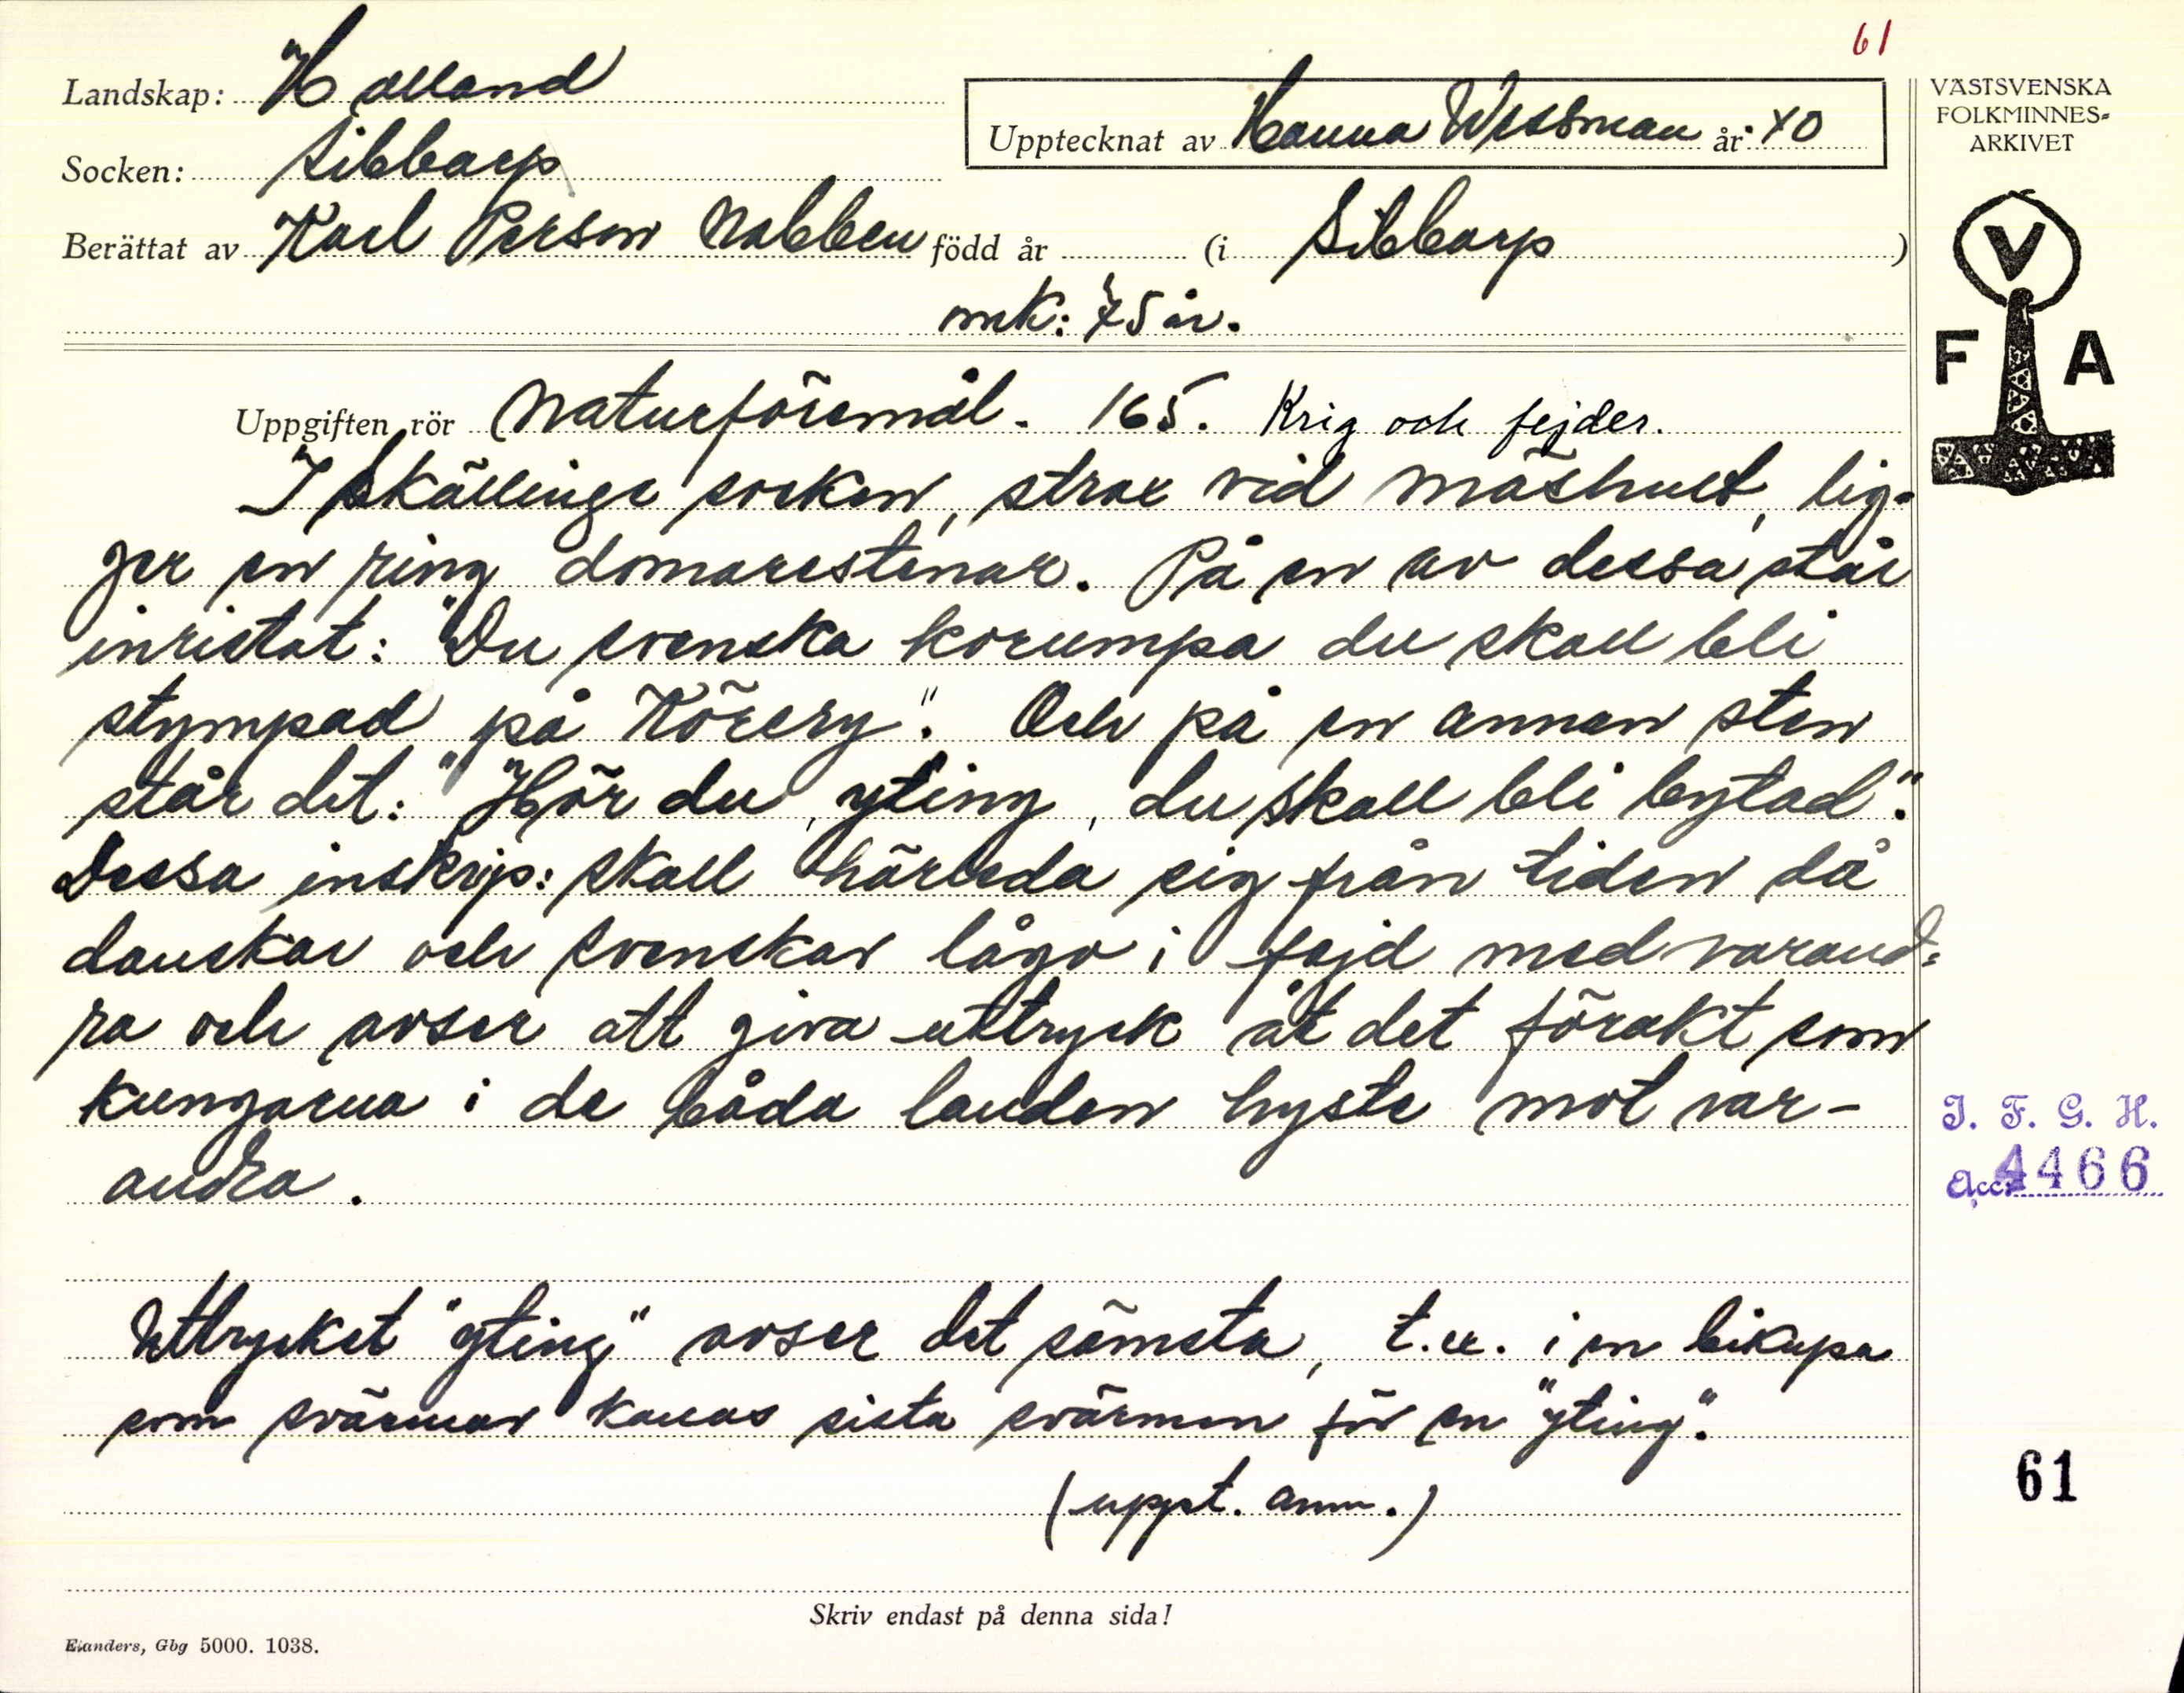 61
Landskap: Halland
Socken: Sibbarp
Upptecknat av Hanna Wessman år: 40
Berättat av Karl Person Nabben född år (i Sibbarp)
omk: 75 år.
VÄSTSVENSKA
FOLKMINNES-
ARKIVET
V
F A
Uppgiften rör Naturföremål. 165. Krig och fejder.
I Skällinge socken, strax vid Mäshult, lig-
ger en ring domarestenar. På en av dessa står
inristat: "Du svenska korumpa du skall bli
stympad på Körery". Och på en annan sten
står det: "Hör du, yting, du skall bli bytad".
Dessa inskrip: skall härleda sig från tiden då
danskar och svenskar lågo i fejd med varand-
ra och avser att giva uttryck åt det förakt som
kungarna i de båda landen hyste mot var-
andra.
Uttrycket "yting" avser det sämsta, t.ex. i en bikupa
som svärmar kallas sista svärmen för en "yting".
(uppt. anm.)
I. F. G. H.
Acc: 4466
61
Skriv endast på denna sida!
Elanders, Gbg 5000. 1038.